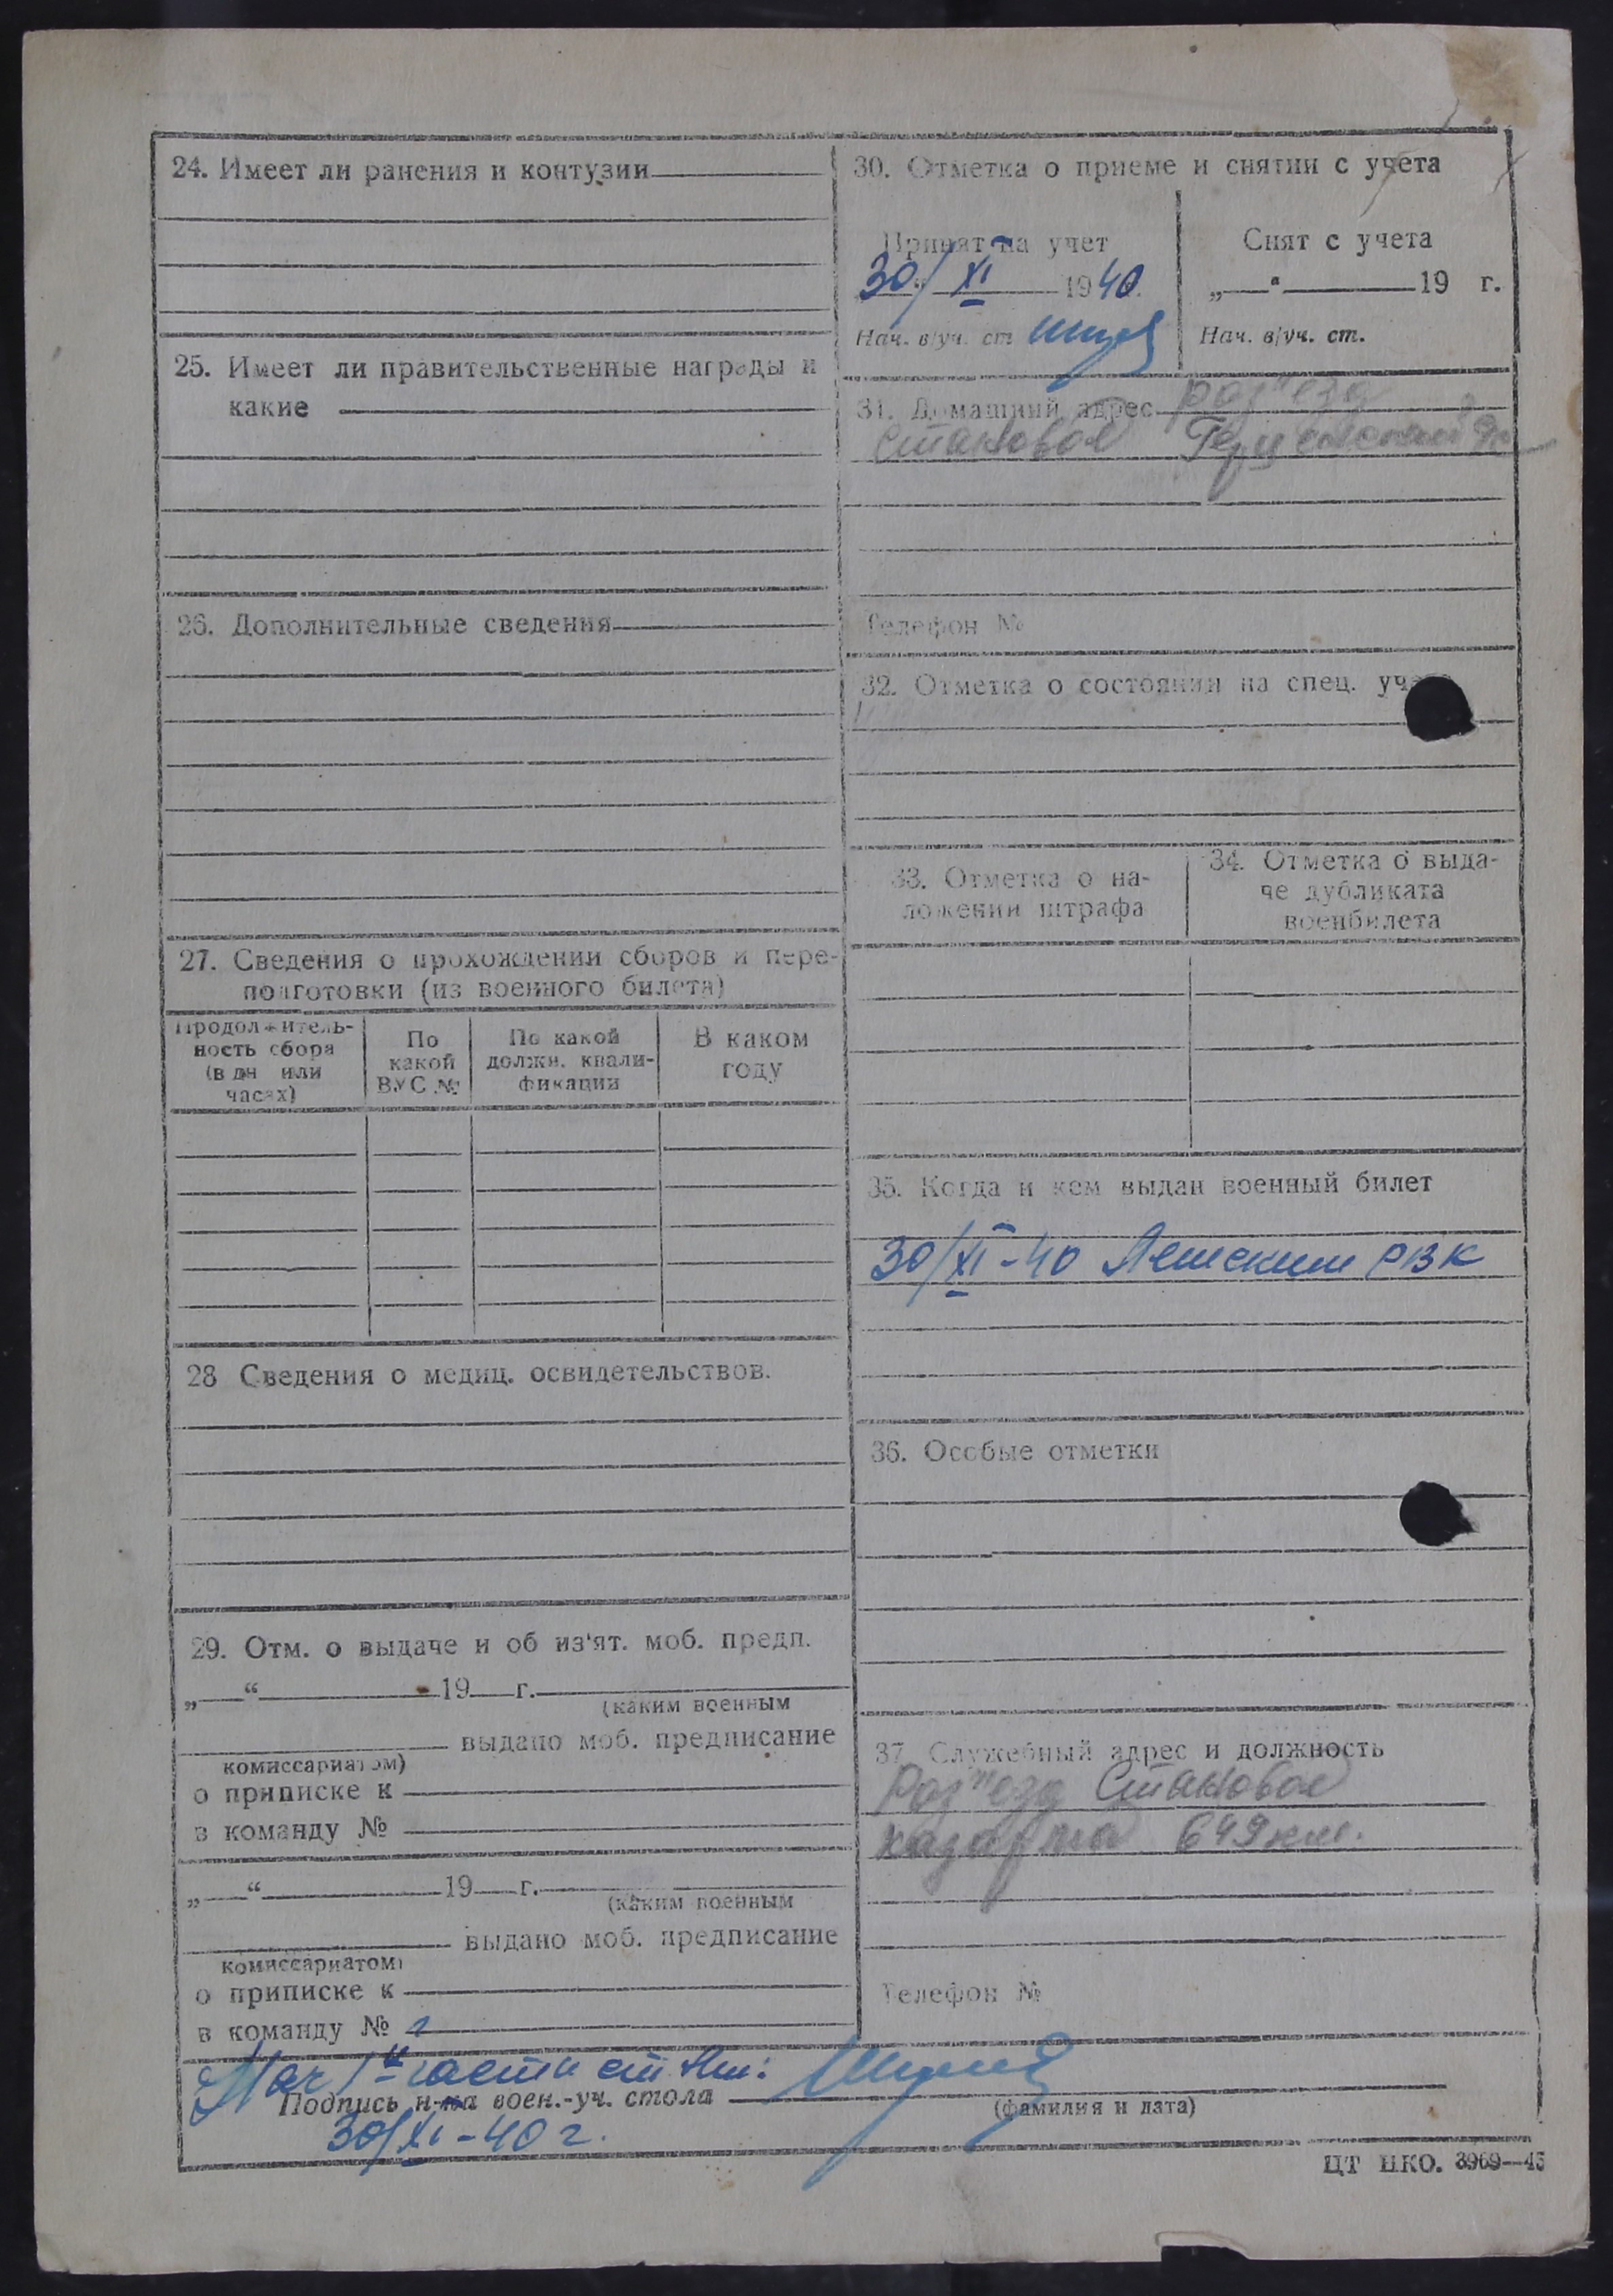 24. Имеет ли ранения и контузии
25. Имеет ли правительственные награды и
какие
26. Дополнительные сведения
27. Сведения о прохождении сборов и пере-
подготовки (из военного билета)
Продолжитель-
ность сбора
(в дн или
часах)
По
какой
ВУС №
По какой
должн. квали-
фикации
В каком
году
28 Сведения о медиц. освидетельствов.
29. Отм. о выдаче и об из'ят. моб. предп.
„ “ 19 г.
(каким военным
выдано моб. предписание
комиссариатом)
о приписке к
в команду №
„ “ 19 г.
(каким военным
выдано моб. предписание
комиссариатом)
о приписке к
в команду №
30. Отметка о приеме и снятии с учета
Принят на учет
30/XI 1940
Нач. в/уч. ст
Снят с учета
„ “ 19 г.
Нач. в/уч. ст.
31. Домашний адрес роз"езд
Становое
Телефон №
32. Отметка о состоянии на спец. учете
33. Отметка о на-
ложении штрафа
34. Отметка о выда-
че дубликата
военбилета
35. Когда и кем выдан военный билет
30/XI-40 РВК
36. Особые отметки
37. Служебный адрес и должность
Роз"езд Становое
казарма 649 км.
Телефон №
Нач 1й части
Подпись н-ка воен.-уч. стола
(фамилия и дата)
30/XI-40 г.
ЦТ НКО. 3969—4